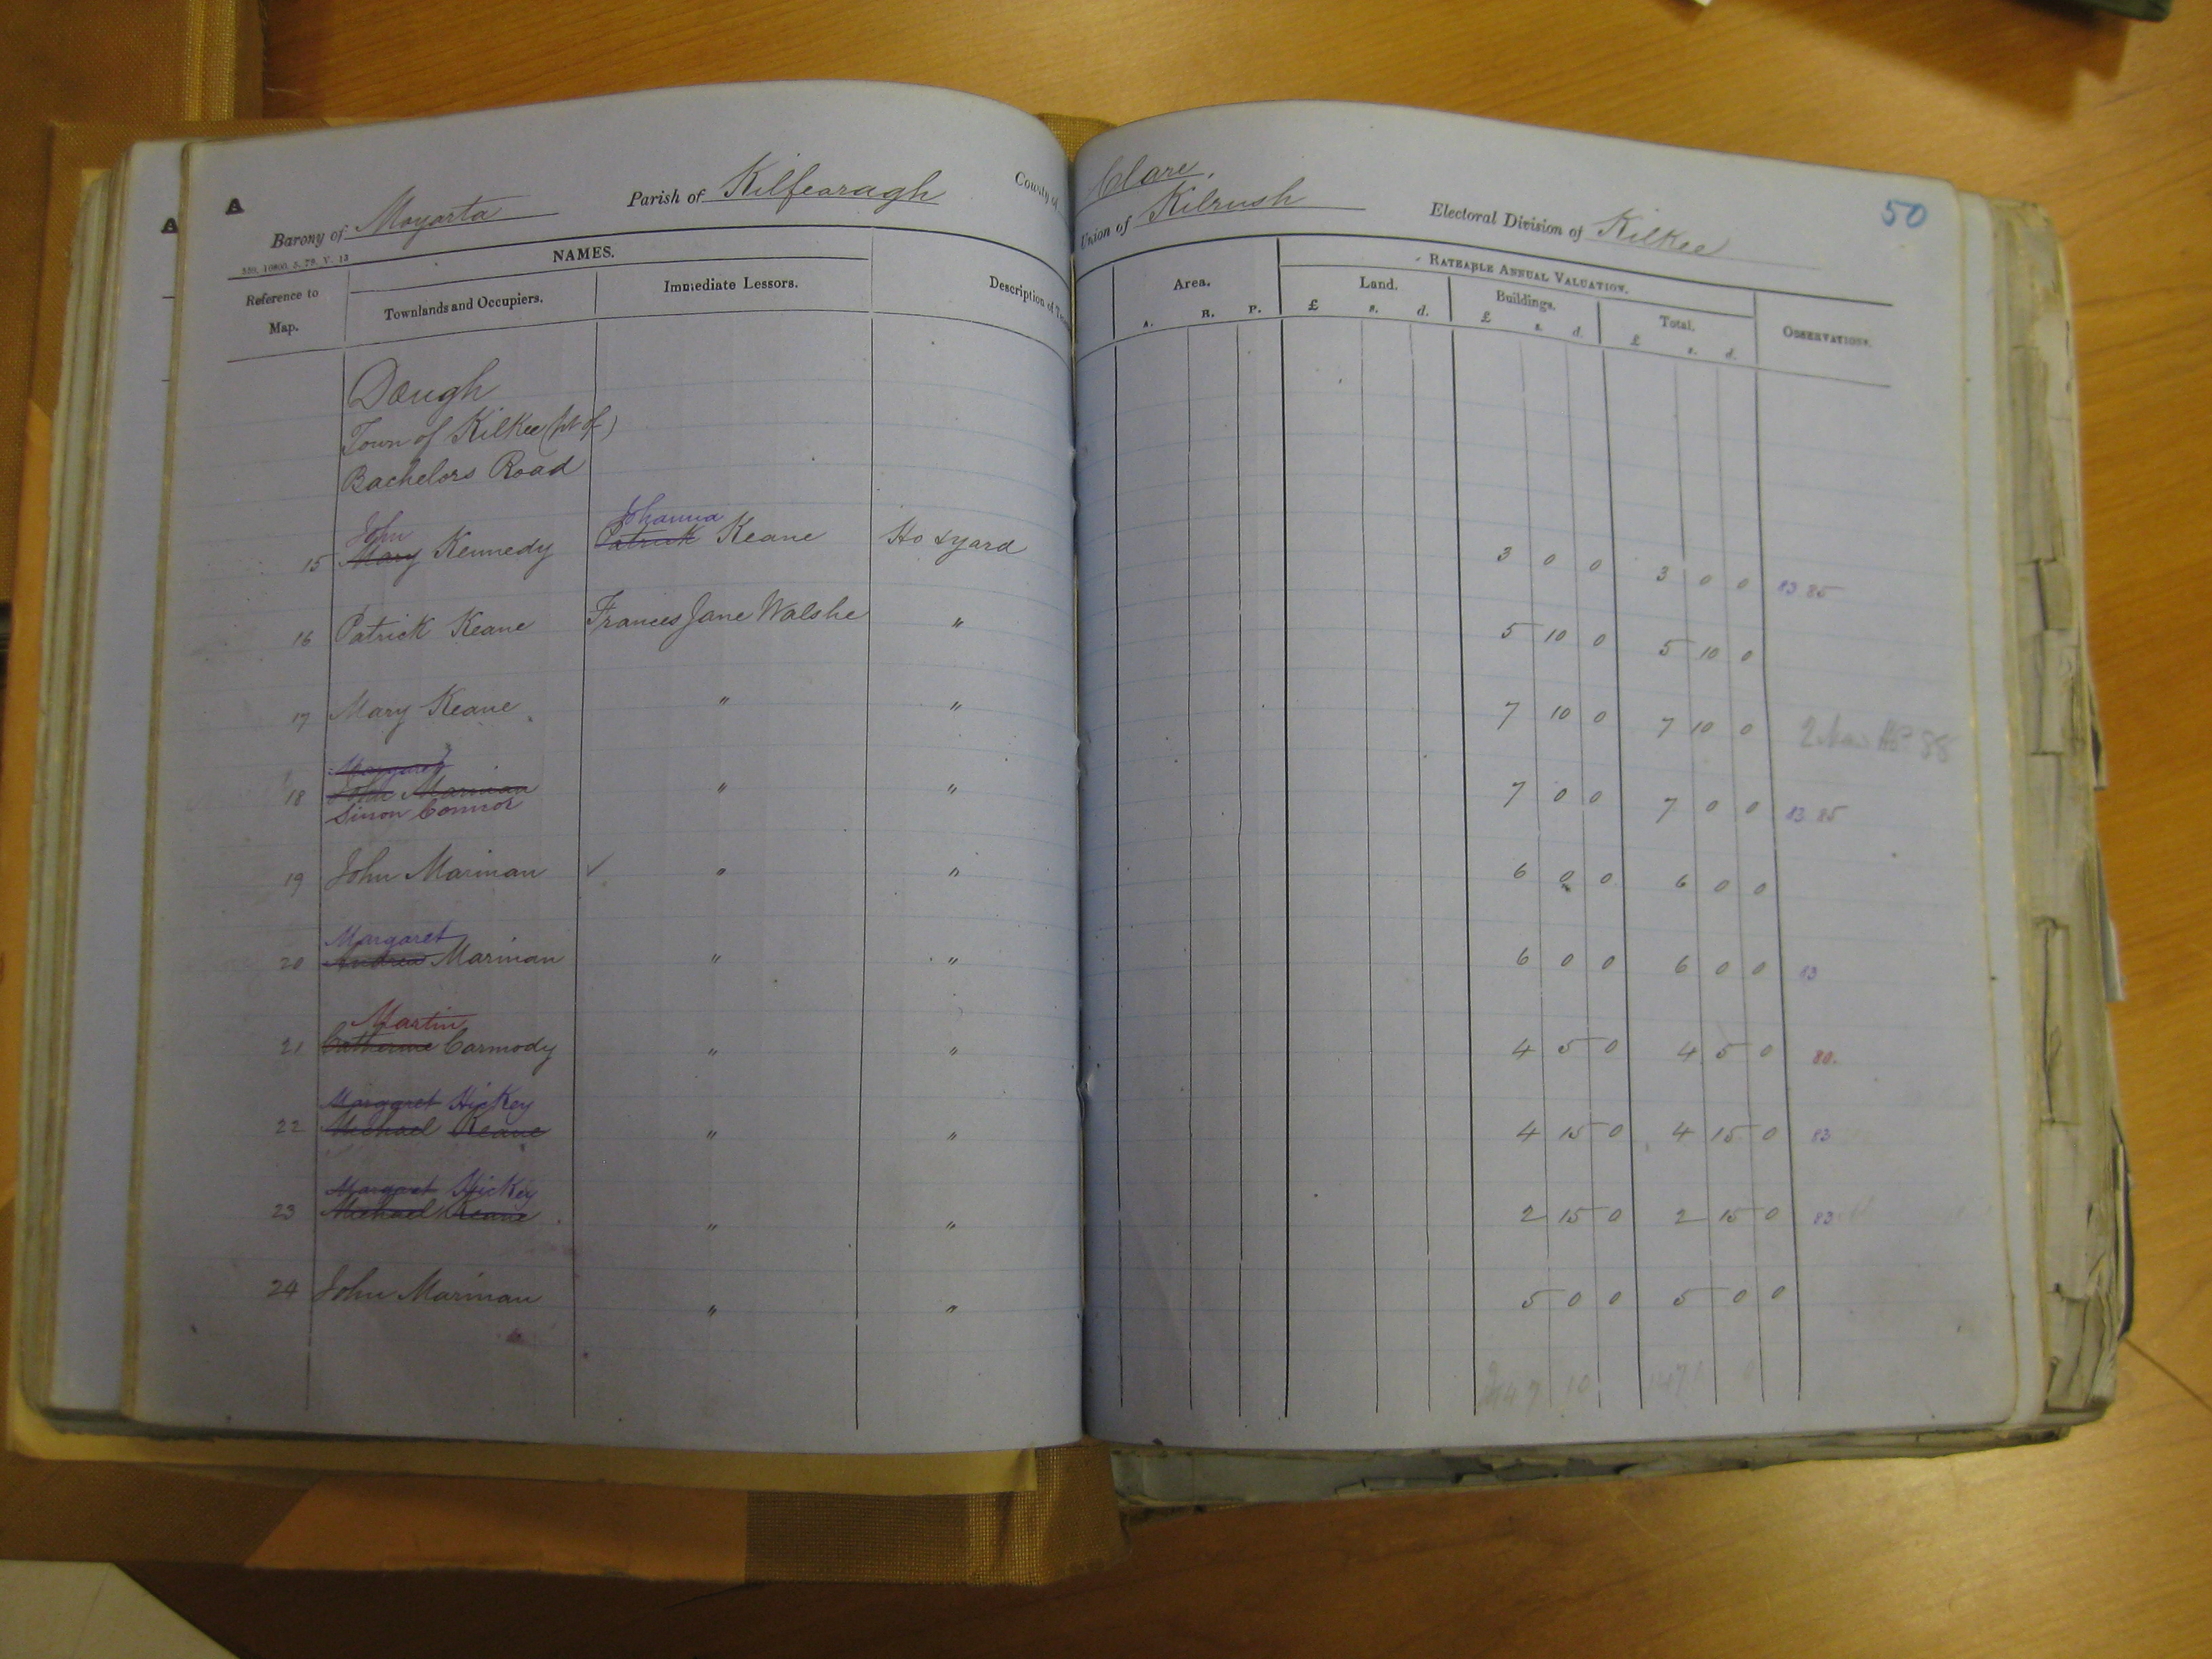 A
A
Barony of Moyarta Parish of Kilfearagh County of Clare.
Union of Kilrush Electoral Division of Kilkee 50
NAMES.
RATEABLE ANNUAL VALUATION.
Reference to Map. Townlands and Occupiers. Immediate Lessors. Description of Area. Land. Buildings. Total. OBSERVATIONS.
A. R. P. £ s. d. £ s. d. £ s. d.
Dough
Town of Kilkee (pt of)
Bachelors Road
John Johanna
15 Mary Kennedy Patrick Keane Ho & yard 3 0 0 3 0 0 83 85
16 Patrick Keane Frances Jane Walshe " 5 10 0 5 10 0
17 Mary Keane " " 7 10 0 7 10 0 88
Margaret
18 John Marinan " " 7 0 0 7 0 0 83 85
Simon Connor
19 John Marinan ✓ " " 6 0 0 6 0 0
Margaret
20 Andrew Marinan " " 6 0 0 6 0 0 83
Martin
21 Catherine Carmody " " 4 5 0 4 5 0 80.
Margaret Hickey
22 Michael Keane " " 4 15 0 4 15 0 83
Margaret Hickey
23 Michael Keane " " 2 15 0 2 15 0 83
24 John Marinan " " 5 0 0 5 0 0